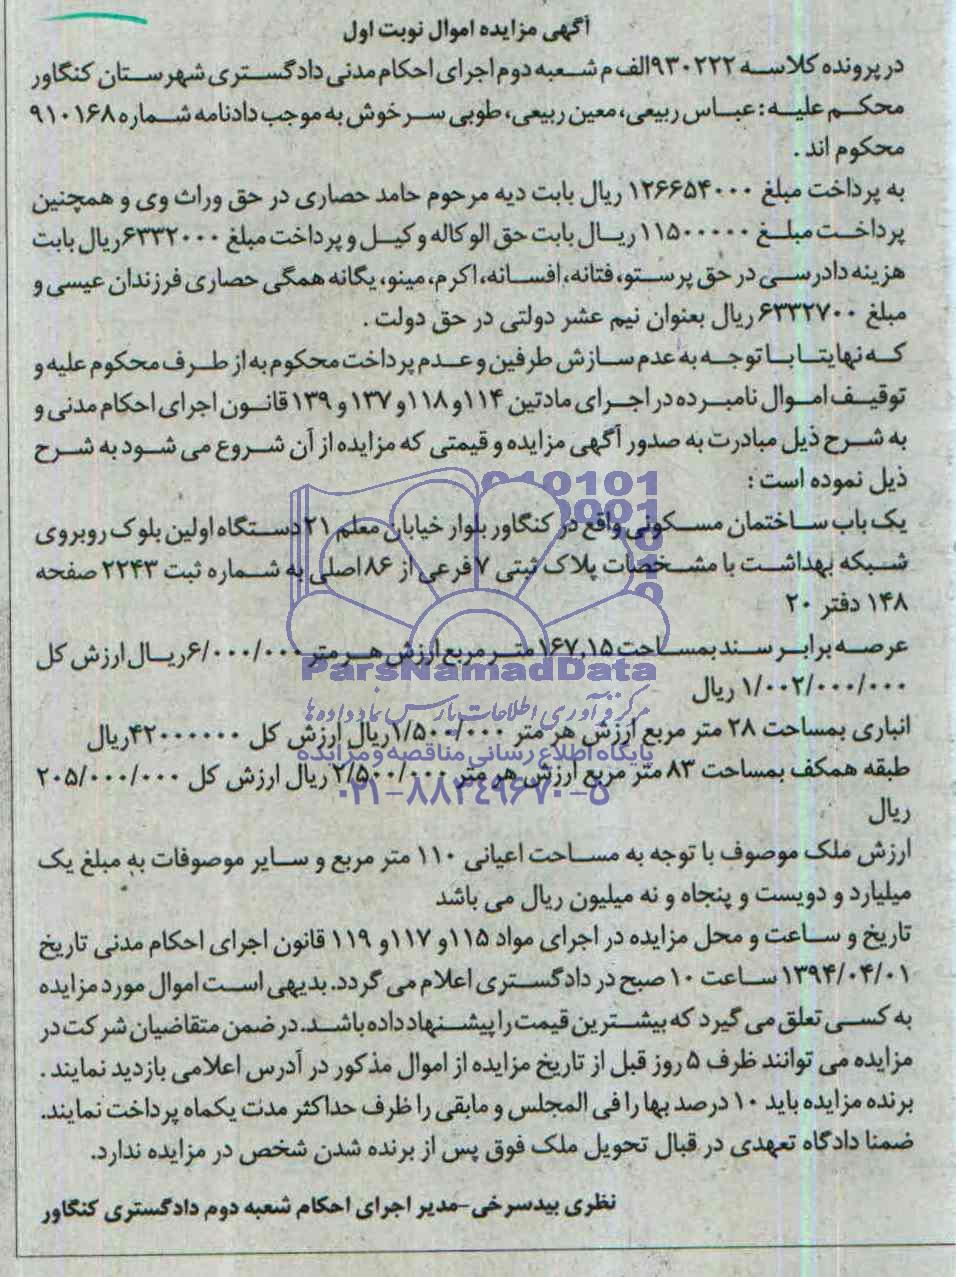 آگهی مزایده اموال نوبت اول
در پرونده کلاسه ۹۳۰۲۲۲الف م شعبه دوم اجرای احکام مدنی دادگستری شهرستان کنگاور
محکم علیه : عباس ربیعی، معین ربیعی، طوبی سرخوش به موجب دادنامه شماره ۹۱۰۱۶۸
محکوم اند .
به پرداخت مبلغ ۱۲۶۶۵۴۰۰۰ ریال بابت دیه مرحوم حامد حصاری در حق وراث وی و همچنین
پرداخت مبلغ ۱۱۵۰۰۰۰۰ ریال بابت حق الوکاله وکیل و پرداخت مبلغ ۶۳۳۲۰۰۰ریال بابت
هزینه دادرسی در حق پرستو، فتانه، افسانه، اکرم، مینو، یگانه همگی حصاری فرزندان عیسی و
مبلغ ۶۳۳۲۷۰۰ ریال بعنوان نیم عشر دولتی در حق دولت .
که نهایتا با توجه به عدم سازش طرفین و عدم پرداخت محکوم به از طرف محکوم علیه و
توقیف اموال نامبرده در اجرای مادتین ۱۱۴ و ۱۱۸ و ۱۳۷ و ۱۳۹ قانون اجرای احکام مدنی و
به شرح ذیل مبادرت به صدور آگهی مزایده و قیمتی که مزایده از آن شروع می شود به شرح
ذیل نموده است :
یک باب ساختمان مسکونی واقع در کنگاور بلوار خیابان معلم ۲۱ دستگاه اولین بلوک روبروی
شبکه بهداشت با مشخصات پلاک ثبتی ۷ فرعی از ۸۶ اصلی به شماره ثبت ۲۲۴۳ صفحه
۱۴۸ دفتر ۲۰
عرصه برابر سند بمساحت ۱۶۷,۱۵ متر مربع ارزش هر متر ۶/۰۰۰/۰۰۰ریال ارزش کل
۱/۰۰۲/۰۰۰/۰۰۰ ریال
انباری بمساحت ۲۸ متر مربع ارزش هر متر ۱/۵۰۰/۰۰۰ریال ارزش کل ۴۲۰۰۰۰۰۰ریال
طبقه همکف بمساحت ۸۳ متر مربع ارزش هر متر ۲/۵۰۰/۰۰۰ ریال ارزش کل ۲۰۵/۰۰۰/۰۰۰
ریال
ارزش ملک موصوف با توجه به مساحت اعیانی ۱۱۰ متر مربع و سایر موصوفات به مبلغ یک
میلیارد و دویست و پنجاه و نه میلیون ریال می باشد
تاریخ و ساعت و محل مزایده در اجرای مواد ۱۱۵ و ۱۱۷ و ۱۱۹ قانون اجرای احکام مدنی تاریخ
۱۳۹۴/۰۴/۰۱ ساعت ۱۰ صبح در دادگستری اعلام می گردد. بدیهی است اموال مورد مزایده
به کسی تعلق می گیرد که بیشترین قیمت را پیشنهاد داده باشد. در ضمن متقاضیان شرکت در
مزایده می توانند ظرف ۵ روز قبل از تاریخ مزایده از اموال مذکور در آدرس اعلامی بازدید نمایند .
برنده مزایده باید ۱۰ درصد بها را فی المجلس و مابقی را ظرف حداکثر مدت یکماه پرداخت نمایند.
ضمنا دادگاه تعهدی در قبال تحویل ملک فوق پس از برنده شدن شخص در مزایده ندارد.
نظری بیدسرخی-مدیر اجرای احکام شعبه دوم دادگستری کنگاور
ParsNamadData
مرکز فرآوری اطلاعات پارس نماد داده ها
پایگاه اطلاع رسانی مناقصه و مزایده
۰۲۱-۸۸۳۴۹۶۷۰-۵